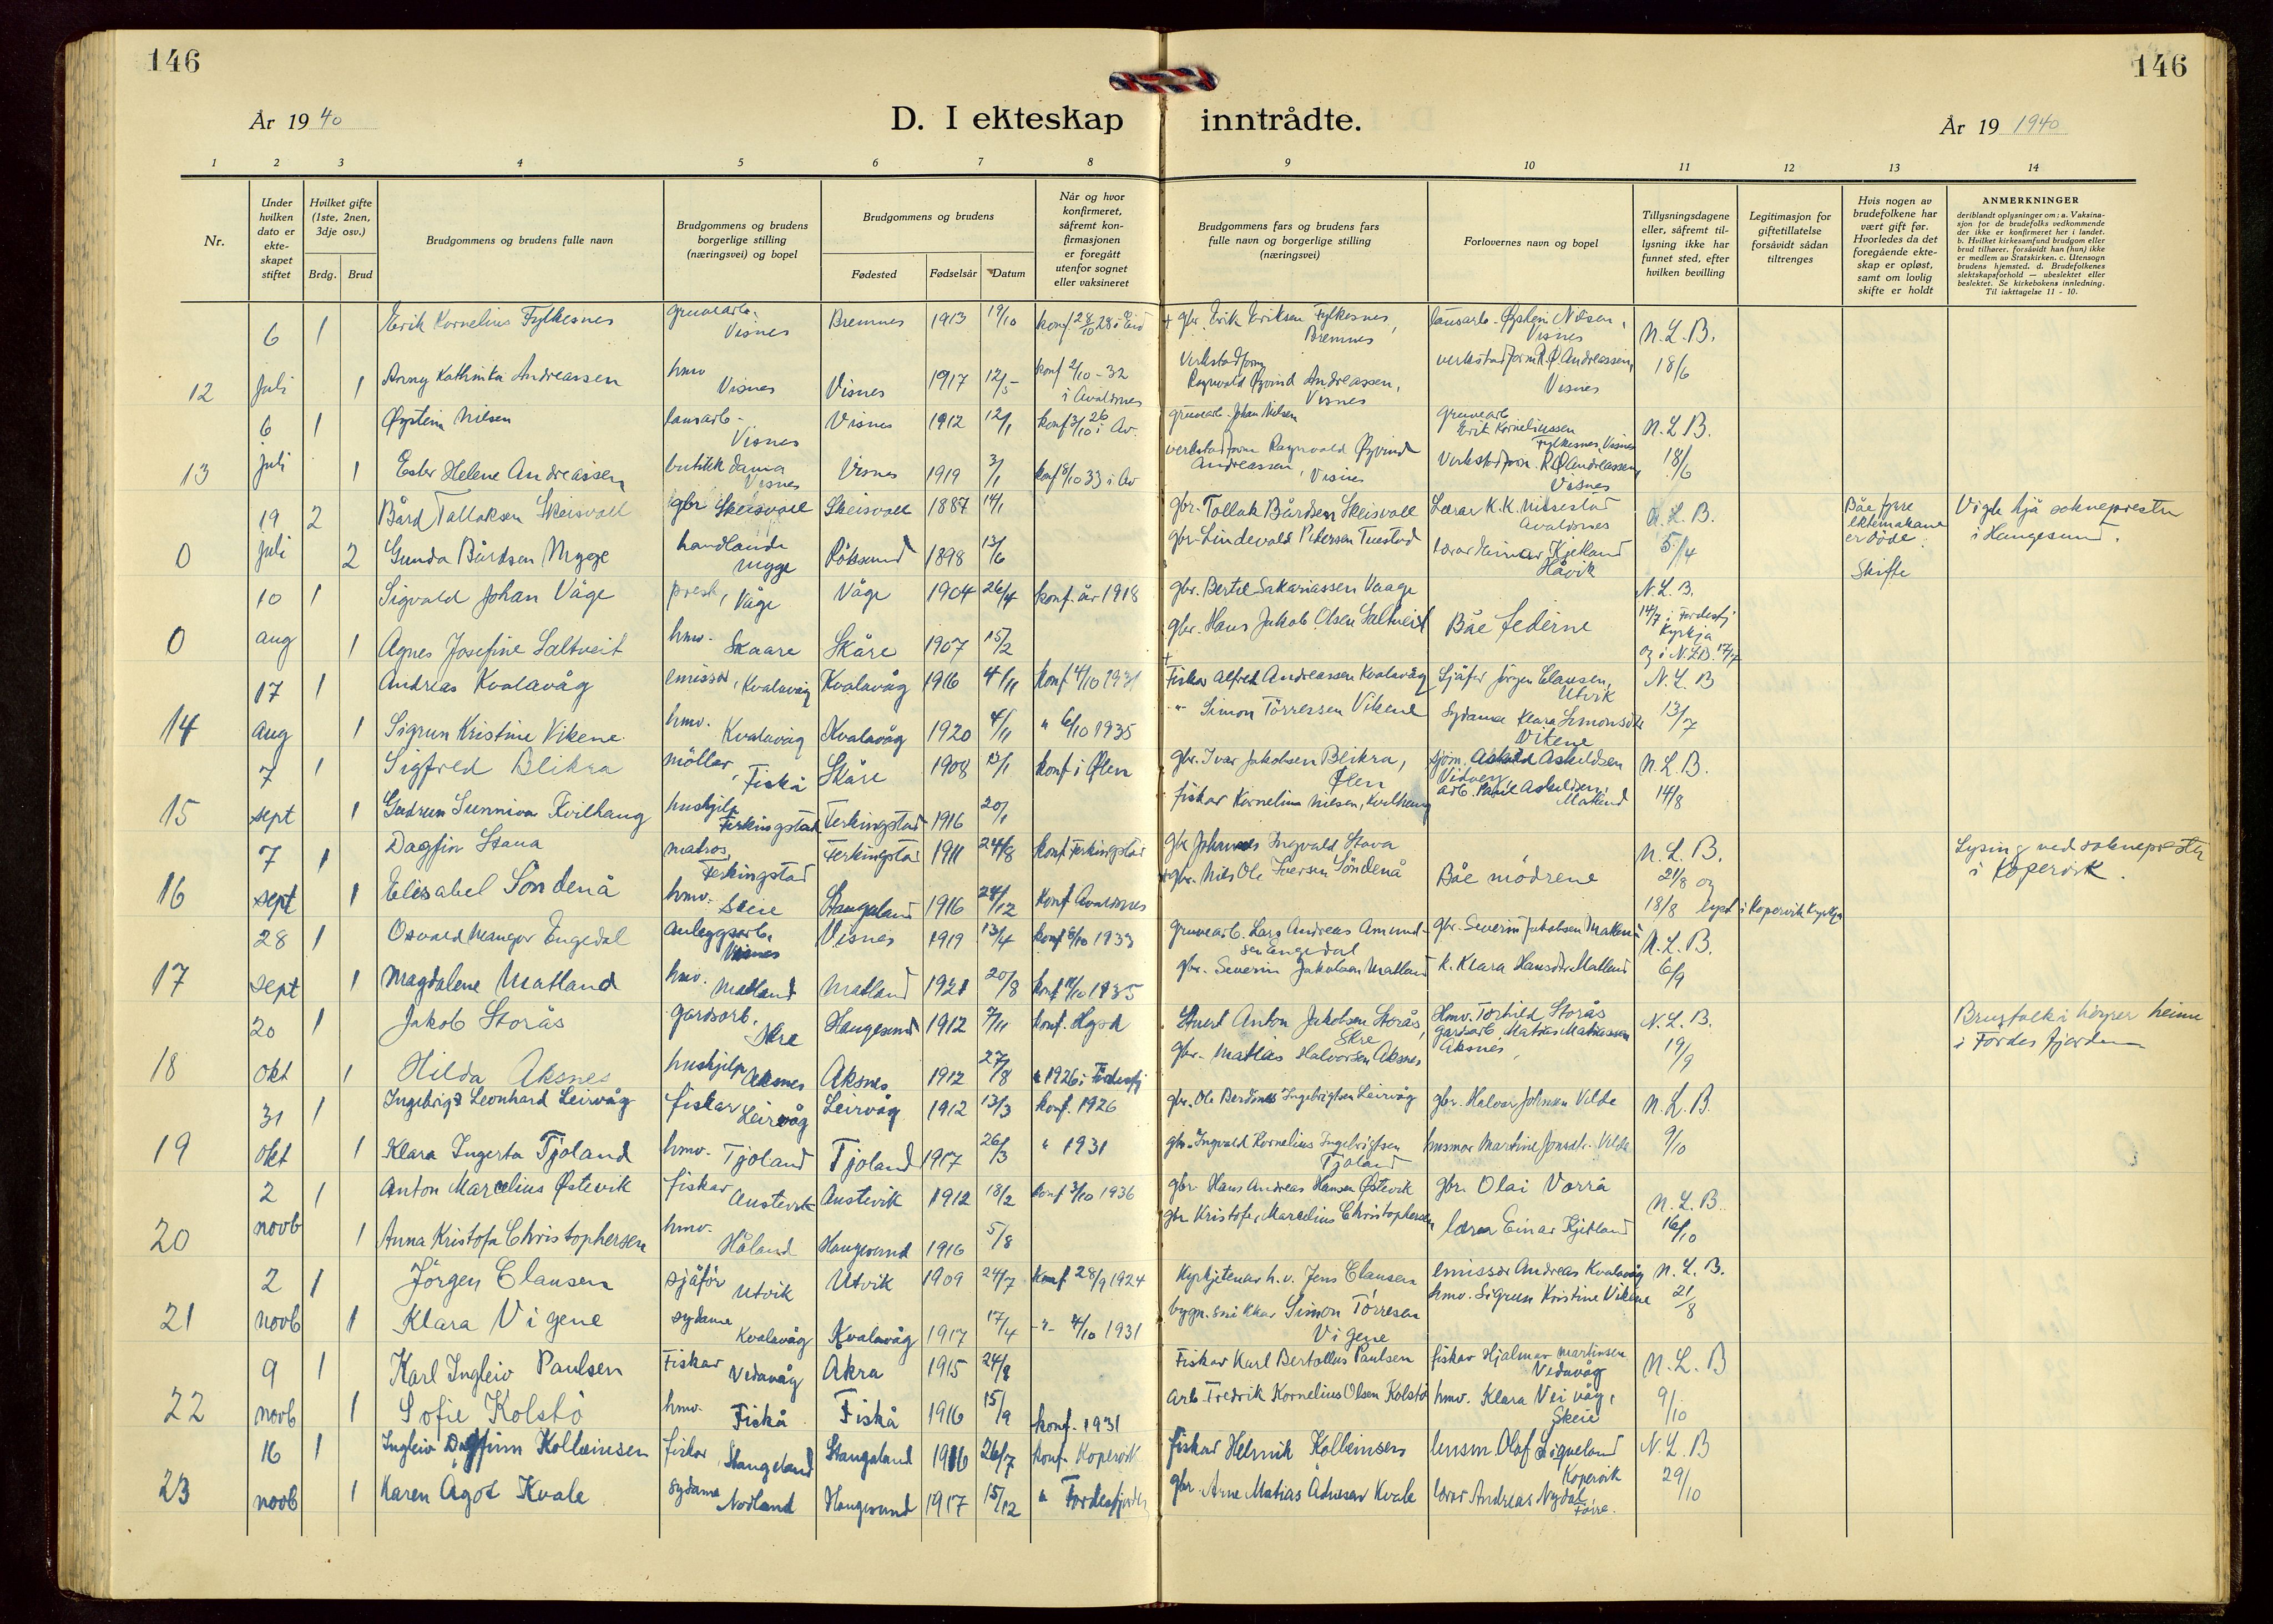 146
146
År 19 40
D. I ekteskap inntrådte.
År 19 1940
1 2 3 4 5 6 7 8 9 10 11 12 13 14
Nr.
Under hvilken dato er ekte- skapet stiftet
Hvilket gifte (1ste, 2nen, 3dje osv.)
Brdg. Brud
Brudgommens og brudens fulle navn
Brudgommens og brudens borgerlige stilling (næringsvei) og bopel
Brudgommens og brudens
Fødested Fødselsår Datum
Når og hvor konfirmeret, såfremt kon- firmasjonen er foregått utenfor sognet eller vaksineret
Brudgommens fars og brudens fars fulle navn og borgerlige stilling (næringsvei)
Forlovernes navn og bopel
Tillysningsdagene eller, såfremt til- lysning ikke har funnet sted, efter hvilken bevilling
Legitimasjon for giftetillatelse forsåvidt sådan tiltrenges
Hvis nogen av brudefolkene har vært gift før. Hvorledes da det foregående ekte- skap er opløst, samt om lovlig skifte er holdt
ANMERKNINGER
deriblandt oplysninger om: a. Vaksina- sjon for de brudefolks vedkommende der ikke er konfirmeret her i landet. b. Hvilket kirkesamfund brudgom eller brud tilhører, forsåvidt han (hun) ikke er medlem av Statskirken. c. Utensogn brudens hjemsted. d. Brudefolkenes slektskapsforhold — ubeslektet eller beslektet. Se kirkebokens innledning. Til iakttagelse 11 - 10.
6 1 Erik Kornelius Fylkesnes gruvearb. Visnes Bremnes 1913 19/10 konf 28/10 28 i Eid + gbr. Erik Eriksen Fylkesnes, Bremnes lausarb. Øystein Nilsen, Visnes N.L.B.
12 juli 1 Anny Kathinka Andreassen hmv Visnes Visnes 1917 12/5 konf 2/10-32 i Avaldsnes Verkstadform Ragnvald Øyvind Andreassen, Visnes verkstadform R.Ø Andreassen, Visnes 18/6
6 1 Øystein Nilsen lausarb- Visnes Visnes 1912 12/1 konf 3/10 26 i Av. gruvearb. Johan Nilsen gruvearb Erik Korneliussen Fylkesnes, Visnes N.L.B.
13 juli 1 Ester Helene Andreassen butikkdama Visnes Visnes 1919 3/1 konf 8/10 33 i Av verkstadform Ragnvald Øyvind Andreassen, Visnes Verkstadform. R.Ø Andreassen, Visnes 18/6
19 2 Bård Tollaksen Skeisvoll gbr Skeisvoll Skeisvoll 1887 14/1 gbr. Tollak Bårdsen Skeisvoll Lærar K.K. Avaldsnes N.L.B. Båe fyrre ektemakane er døde. Vigde hjå soknepresten i Haugesund.
0 juli 2 Gunda Bårdsen Mygge handlande Mygge Röksund 1898 13/6 gbr Lindevald Petersen Tuestad lærar Einar Kjetland Håvik 5/4 Skifte
10 1 Sigvald Johan Våge prest, Våge Våge 1904 26/4 konf. år 1918 gbr. Bertel Sakariassen Vaage N.L.B.
0 aug 1 Agnes Josefine Saltveit hmv. Skaare Skåre 1907 15/2 gbr. Hans Jakob Olsen Saltveit Båe federne 14/7 i Fördesfj Kyrkja og i N.L.B. 17/7
17 1 Andreas Kvalavåg emissær, Kvalavåg Kvalavåg 1916 4/11 konf 4/10 1931 + Fiskar Alfred Andreassen Kvalavåg Sjåför Jörgen Clausen, Utvik N.L.B
14 aug 1 Sigrun Kristine Vikene hmv. Kvalavåg Kvalavåg 1920 4/11 " 6/10 1935 " Simon Törressen Vikene Sydama Klara Simonsdtr Vikene 13/7
7 1 Sigfred Blikra möllar, Fiskå Skåre 1908 13/1 konf i Ølen gbr. Ivar Jakobsen Blikra, Ølen sjöm. Askild Askildsen Vidvey N.L.B.
15 sept 1 Gudrun Sunniva Kvilhaug hushjelp Ferkingstad Ferkingstad 1916 20/1 fiskar Kornelius Nilsen, Kvilhaug arb. Askildsen, Matland 14/8
7 1 Dagfin Stava matros, Ferkingstad Ferkingstad 1911 24/8 konf Ferkingstad gbr Johannes Ingvald Stava N.L.B. Lysing ved soknepresten i Kopervik.
16 sept 1 Elisabet Söndenå hmv. Skeie Stangaland 1916 24/12 konf Avaldsnes + gbr. Nils Ole Iversen Söndenå Båe mödrene 21/8 og 18/8 lyst i Kopervik Kyrkja
28 1 Osvald Mangor Engedal anleggsarb, Visnes Visnes 1919 13/4 konf 8/10 1933 gruvearb. Lars Andreas Amundsen Engedal gbr. Severin Jakobsen Matland N.L.B.
17 sept 1 Magdalene Matland hmv. Matland Matland 1921 20/8 konf 1935 gbr. Severin Jakobsen Matland k. Klara Hansdtr Matland 6/9
20 1 Jakob Storås gardsarb, Skre Haugesund 1912 7/11 konf. Hgsd Stuert Anton Jakobsen Storås, Skre Hmv. Torhild Storås N.L.B. Brurfolki höyrer heime i Fördesfjorden
18 okt 1 Hilda Aksnes hushjelp Aksnes Aksnes 1912 27/8 " 1926 i Fördesfj gbr. Matias Halvorsen Aksnes gardsarb Matias Matiassen Aksnes, 19/9
31 1 Ingebrigt Leonhard Leirvåg fiskar Leirvåg Leirvåg 1912 13/3 konf. 1926 gbr. Ole Berdines Ingebrigtsen Leirvåg gbr. Halvar Johnsen Velde N.L.B.
19 okt 1 Klara Ingerta Tjoland hmv. Tjoland Tjoland 1917 26/3 " 1931 gbr. Ingvald Kornelius Ingebrigtsen Tjoland husmor Martine Jonsdtr. Velde 9/10
2 1 Anton Marcelius Østevik fiskar Austevik Austevik 1912 18/2 konf 3/10 1936 gbr Hans Andreas Hansen Østevik gbr. Olai Vorrå N.L.B.
20 novb 1 Anna Kristofa Christophersen hmv. Håland Haugesund 1916 5/8 gbr Kristofer Marcelius Christophersen lærar Einar Kjetland 16/10
2 1 Jörgen Clausen sjåför Utvik Utvik 1909 24/7 konf 28/9 1924 Kyrkjetenar h.v. Jens Clausen emissær Andreas Kvalavåg N.L.B.
21 novb 1 Klara Vigene sydame Kvalavåg Kvalavåg 1917 17/4 -"- 4/10 1931 bygn.snikkar Simon Törresen Vigene hmv. Sigrun Kristine Vikene 21/8
9 1 Karl Ingleiv Paulsen Fiskar Vedavåg Akra 1915 24/8 Fiskar Karl Bertollus Paulsen fiskar Hjalmar Martinsen Vedavåg N.L.B
22 novb 1 Sofie Kolstö hmv. Fiskå Fiskå 1916 15/9 konf. 1931 Arb. Fredrik Kornelius Olsen Kolstö hmv. Klara Vei våg, Skeie 9/10
16 1 Ingleiv Dagfinn Kolbeinsen fiskar, Stangeland Stangaland 1916 26/7 konf. Kopervik fiskar Helmik Kolbeinsen lensm. Olaf Liqueland Kopervik N.L.B
23 novb 1 Karen Ågot Kvale sydame Nodland Haugesund 1917 15/12 " Fördesfjorden gbr Arne Matias Ådnesen Kvale lærar Andreas Nydal, Förre. 29/10